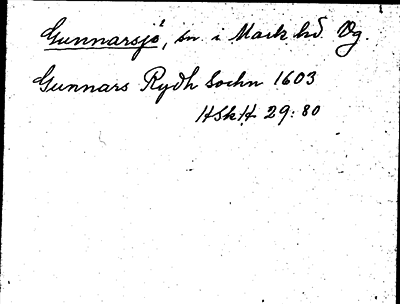 Gunnarsjö, sn i Mark hd Vg.
Gunnars Rydh Sochn 1603
HSkH 29:80